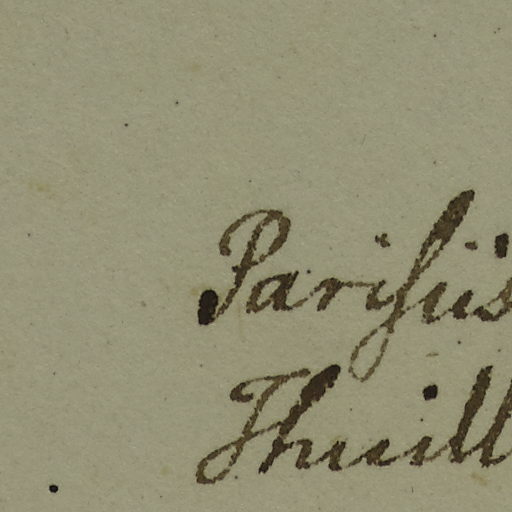 Pariſiis
Thuill